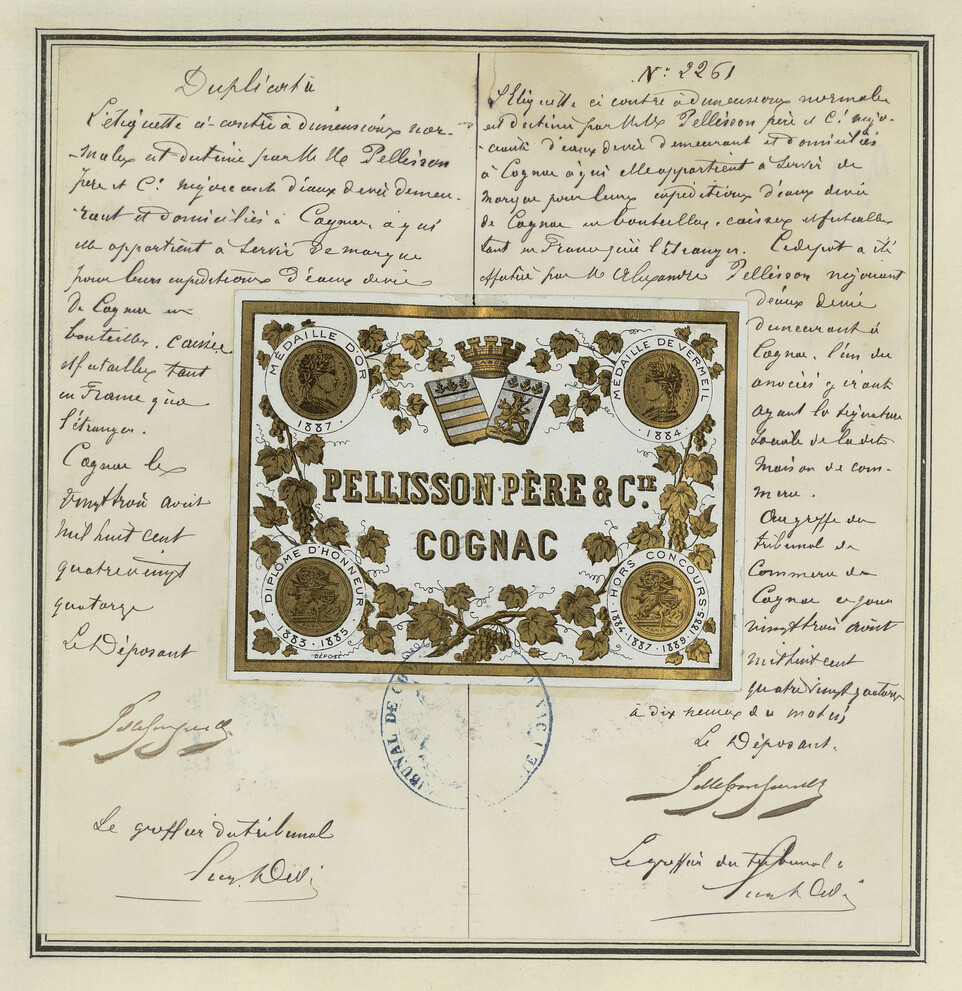 Duplicata
L'étiquette ci-contre à dimensions nor-
-males est destinée par M Mrs Pellisson
père et Cie négociants d'eaux de vie demeu-
-rant et domiciliés à Cognac, à qui
elle appartient à servir de marque
pour leurs expéditions d'eaux de vie
de Cognac en
bouteilles, caisses
et futailles tant
en France qu'a
l'étranger.
Cognac le
vingt trois août
mil huit cent
quatre vingt
quatorze
Le Déposant
Le greffier du tribunal
No: 2261
L'Etiquette ci contre à dimensions normales
est destinée par M Mrs Pellisson père et Cie négo-
-ciants d'eaux de vie demeurant et domiciliés
à Cognac à qui elle appartient à servir de
marque pour leurs expéditions d'eaux de vie
de Cognac en bouteilles, caisses et futailles
tant en France qu'à l'étranger. Ce dépôt a été
effectué par M Alexandre Pellisson négociant
d'eaux de vie
demeurant à
Cognac, l'un des
associés gérants
ayant la signature
sociale de la dite
maison de com-
merce.
Au greffe du
tribunal de
Commerce de
Cognac ce jour
vingt trois août
mil huit cent
quatre vingt quatorze
à dix heures du matin
Le Déposant.
Le greffier du tribunal
MÉDAILLE D'OR
1887
MÉDAILLE DE VERMEIL
1884
PELLISSON PÈRE & CIE.
COGNAC
DIPLÔME D'HONNEUR
1883 · 1885
HORS CONCOURS
1884 · 1887 · 1889 · 1885
DÉPOSÉ
TRIBUNAL DE CO